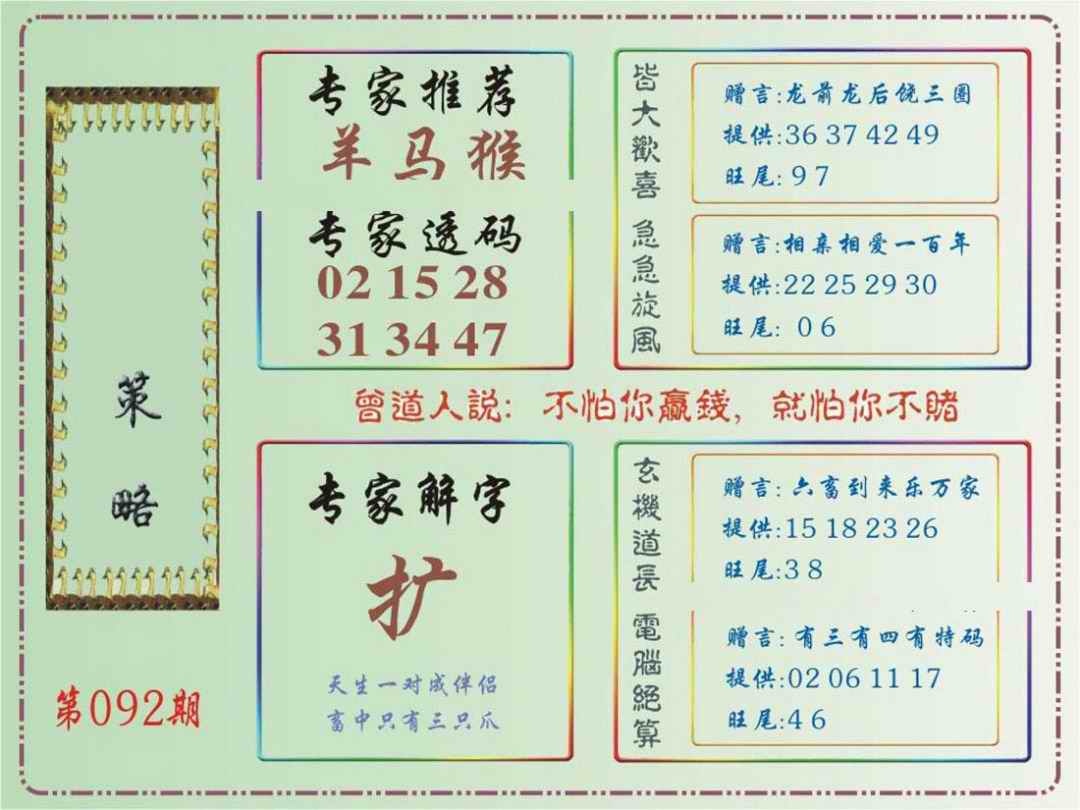 策
略
第092期
专家推荐
羊马猴
专家透码
02 15 28
31 34 47
皆大歡喜
赠言:龙前龙后饶三圈
提供:36 37 42 49
旺尾: 9 7
急急旋風
赠言:相亲相爱一百年
提供:22 25 29 30
旺尾: 0 6
曾道人説: 不怕你贏錢, 就怕你不賭
专家解字
扩
天生一对成伴侣
畜中只有三只爪
玄機道長
赠言: 六畜到来乐万家
提供:15 18 23 26
旺尾:3 8
電腦絕算
赠言: 有三有四有特码
提供:02 06 11 17
旺尾:4 6